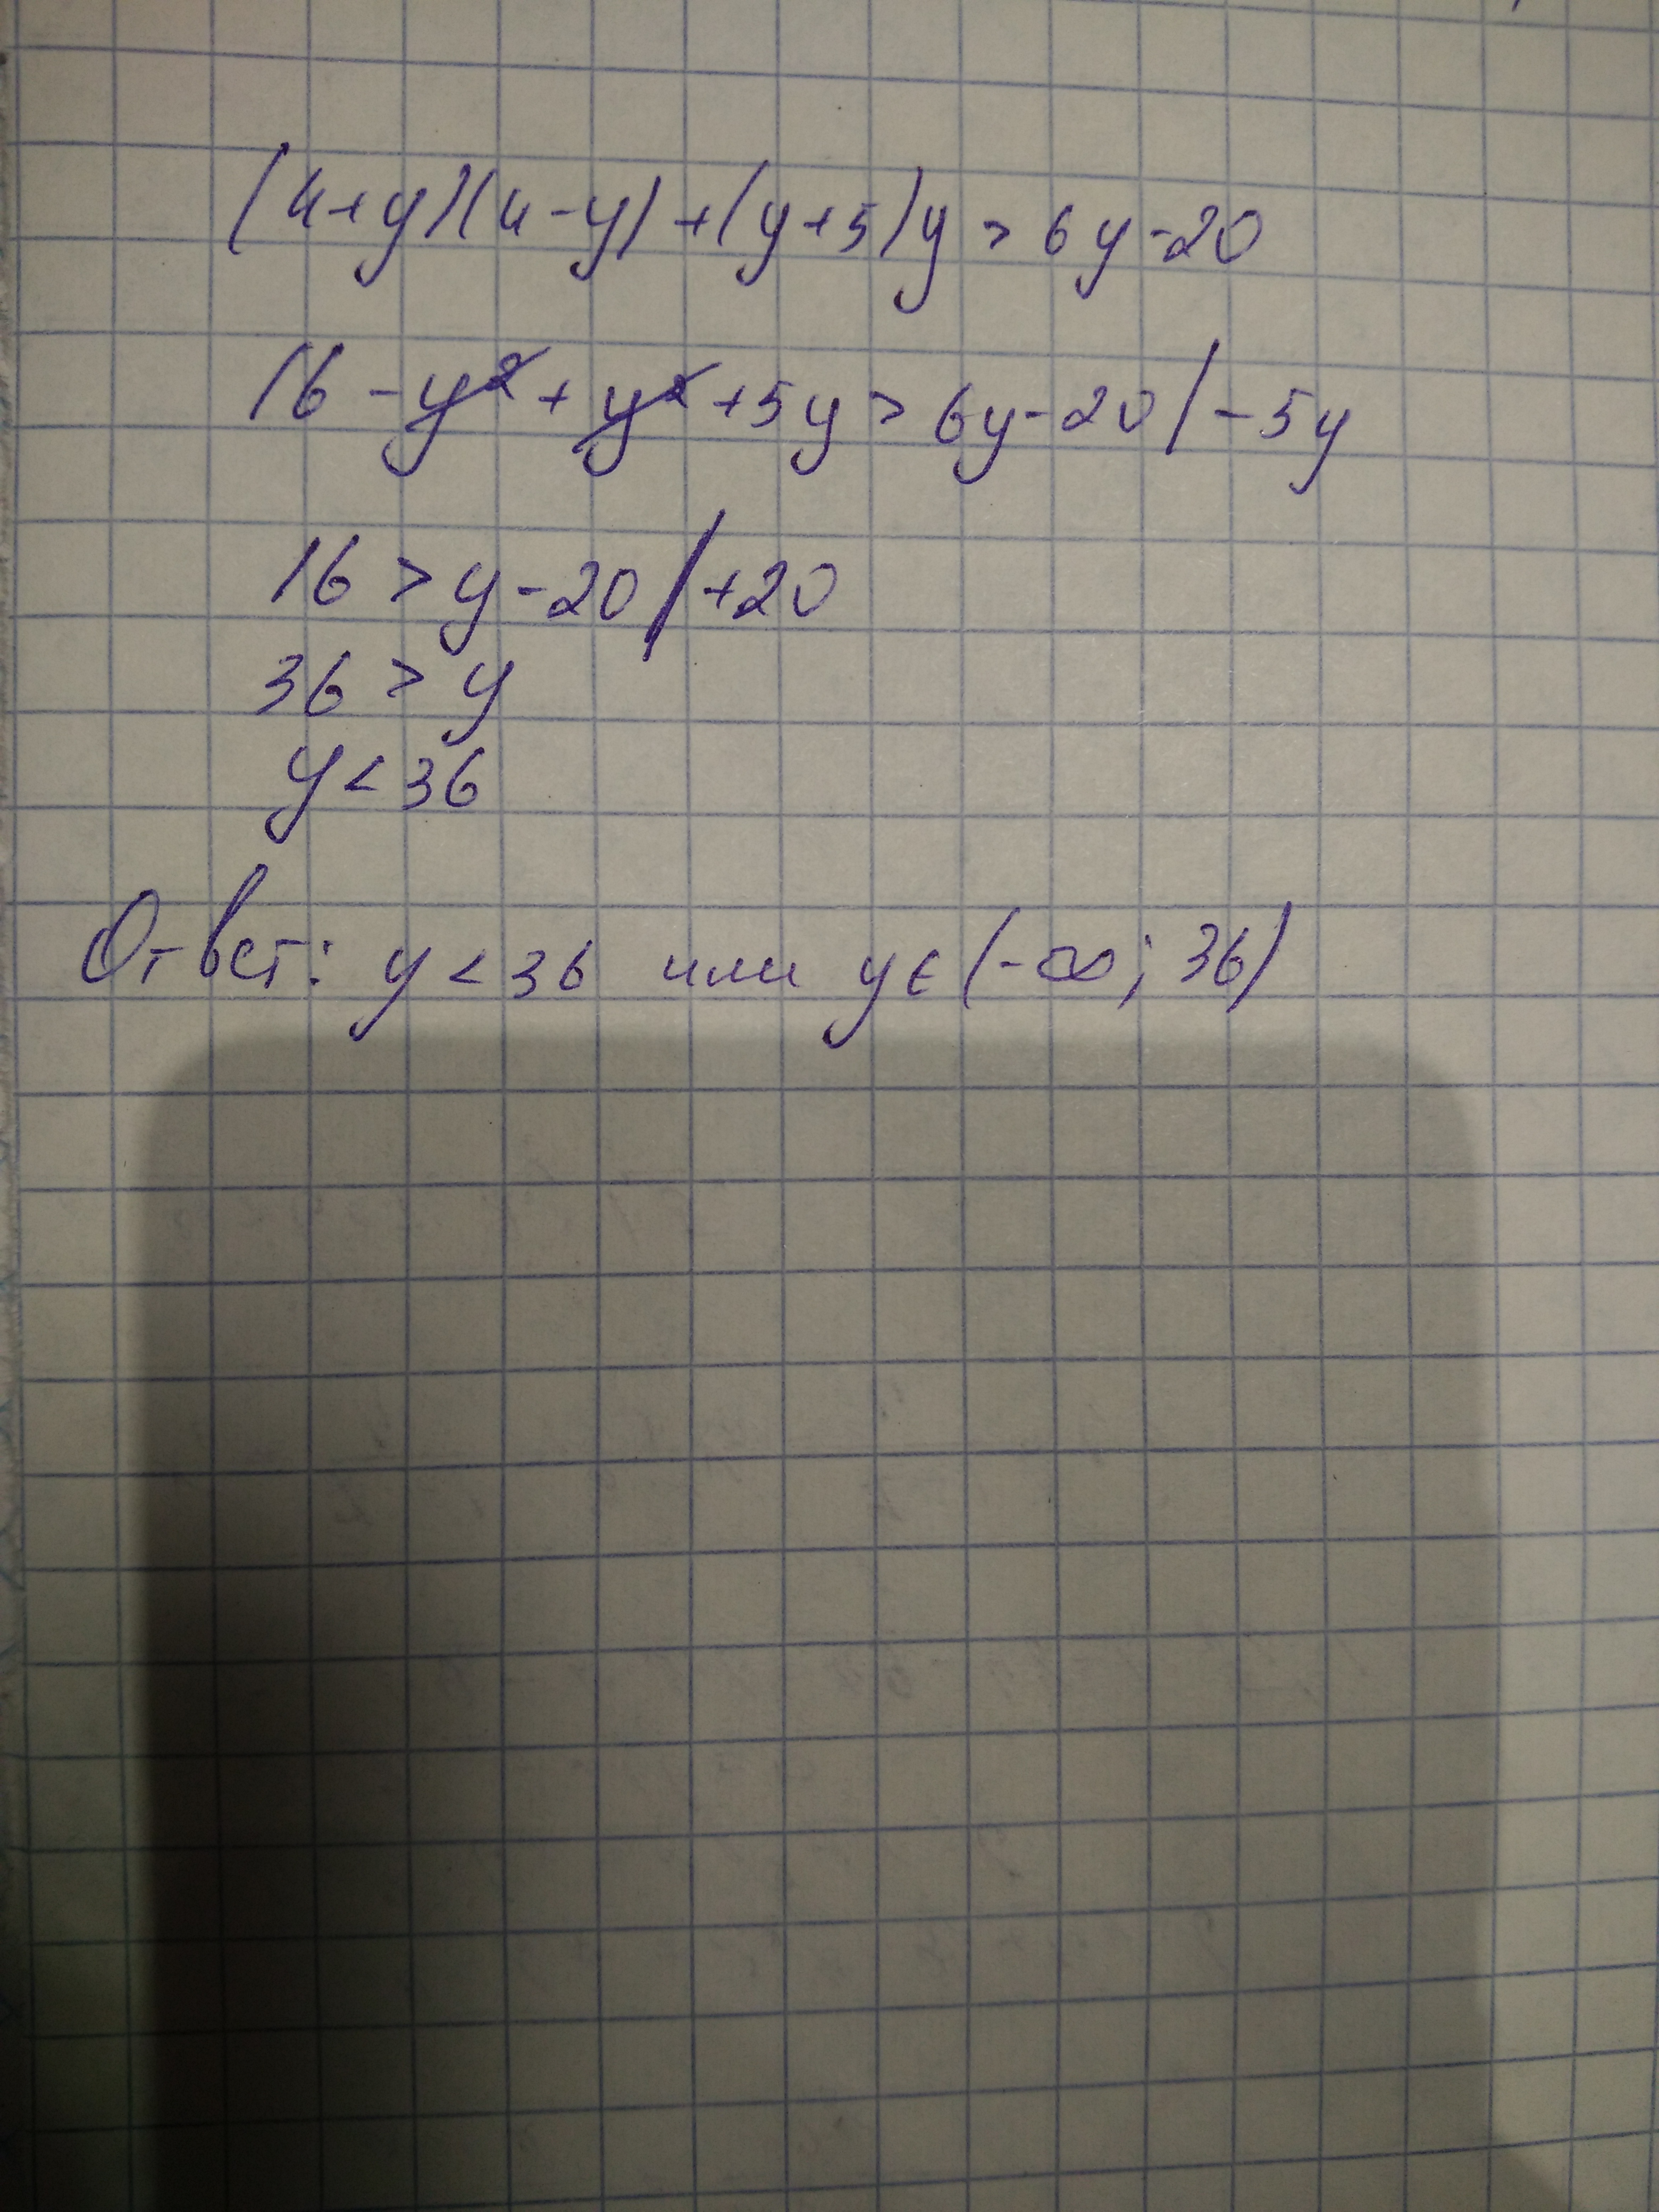 (4+y)(4-y)+(y+5)y > 6y-20
16-y²+y²+5y > 6y-20 |-5y
16 > y-20 |+20
36 > y
y < 36
Ответ: y < 36 или y ∈ (-∞; 36)